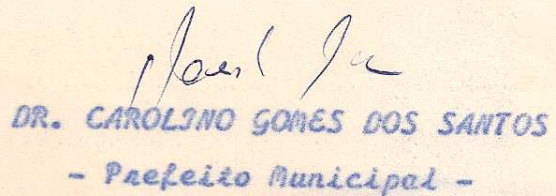 DR. CAROLINO GOMES DOS SANTOS
- Prefeito Municipal -